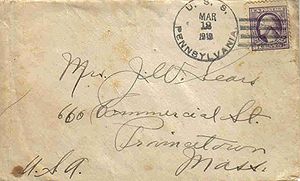 U. S. S.
MAR
PENNSYLVANIA
Mrs. J. W. Sears
660 Commercial St.
Provincetown
Mass.
U.S.A.